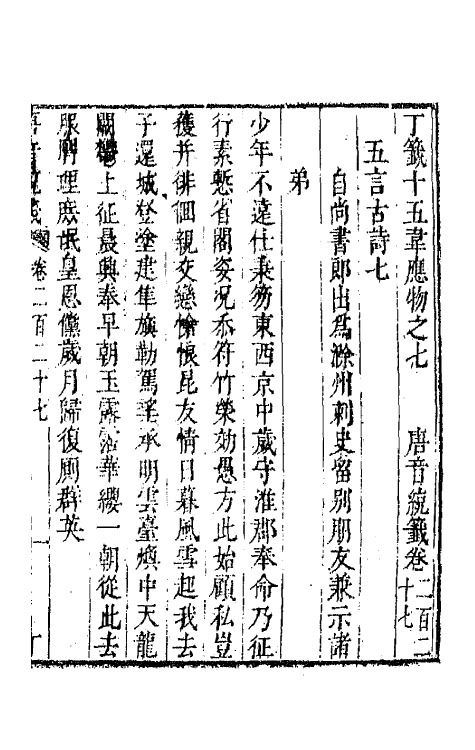 丁籖十五韋應物之七　唐音統籖卷二百二十七
五言古詩七
自尚書郎出為滁州刺史留別朋友兼示諸
弟
少年不遠仕秉笏東西京中歲守淮郡奉命乃征
行素慙省閣姿況忝符竹榮効愚方此始顧私豈
獲并徘徊親交戀愴悢昆友情日暮風雪起我去
子還城登塗建隼旟勒駕望承明雲臺煥中天龍
闕鬱上征晨興奉早朝玉露沾華纓一朝從此去
服膺理庶甿皇恩儻歲月歸復厠群英
卷二百二十七
一